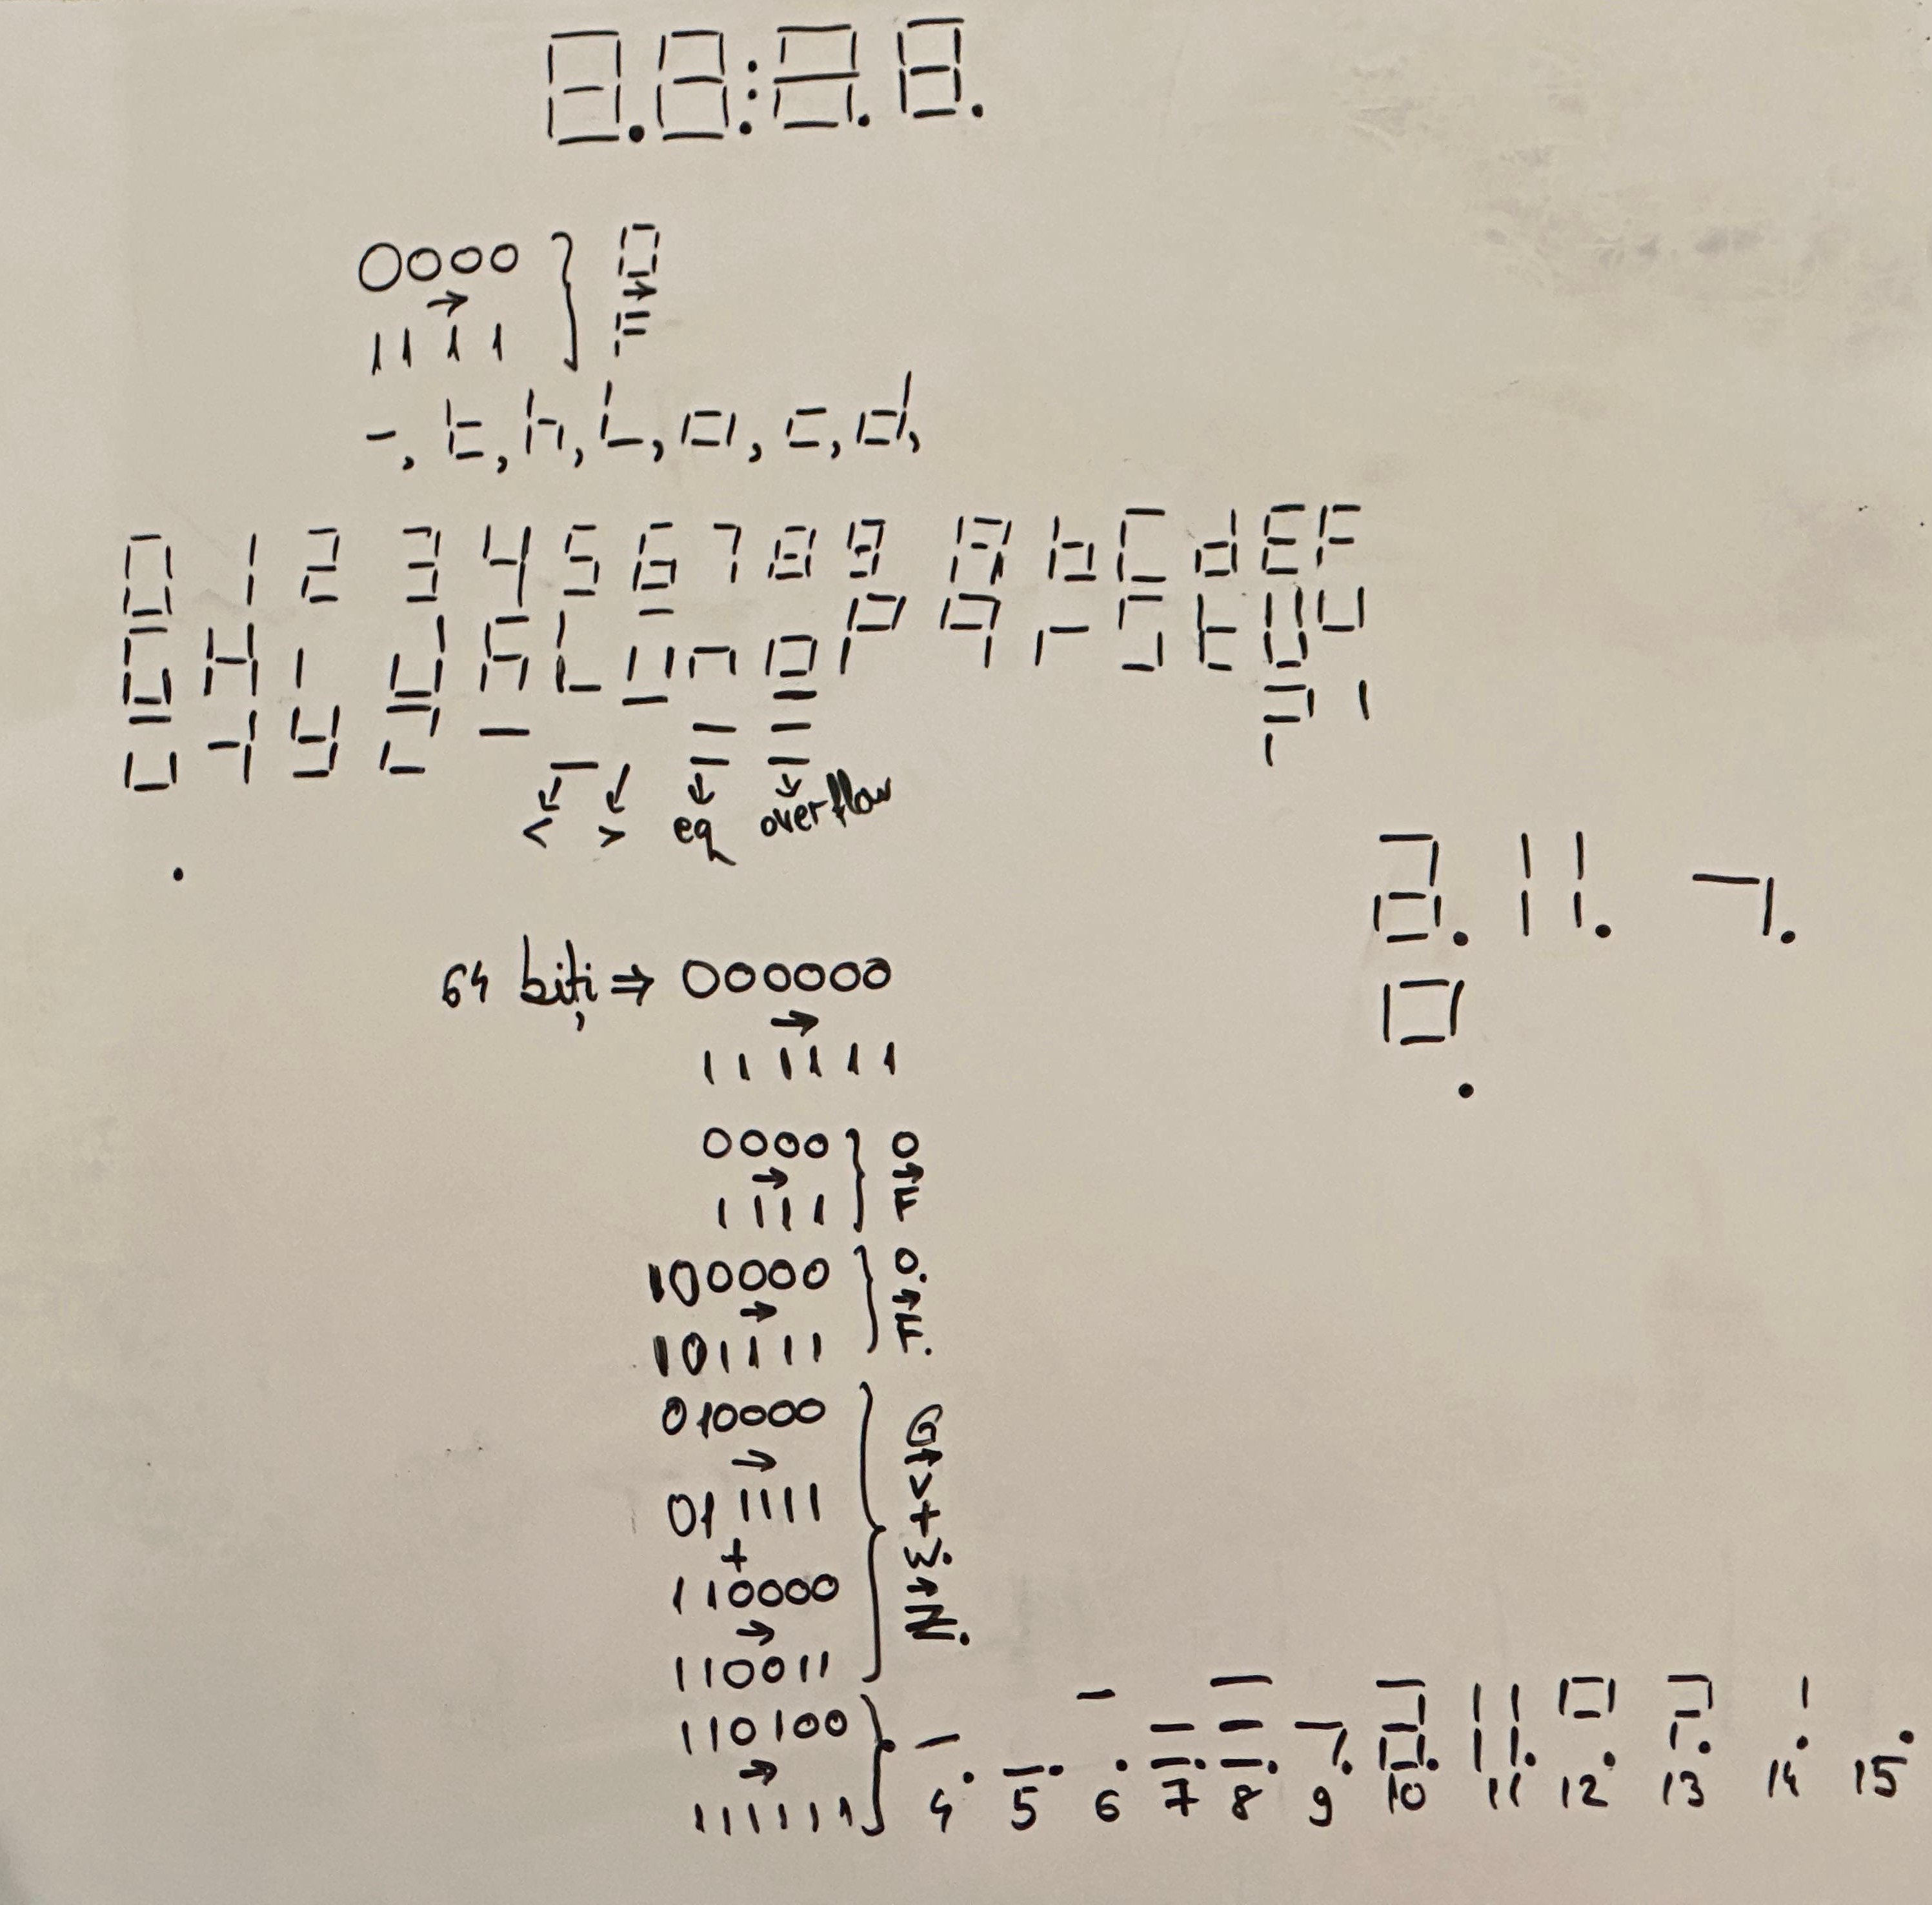 8.8:8.8.
0000
→
1111
} 0 → F
-, t, h, L, o, c, d,
0 1 2 3 4 5 6 7 8 9 A b C d E F
G H i J L n o P q r S t U
- 4 y
< > eq overflow
.
2. 11. 7.
64 biți ⇒ 000000
→
111111
0000
→
1111
} 0 → F
100000
→
101111
} 0. → F.
010000
→
011111
+
110000
→
110011
} G → V + W. → N.
110100
→
111111
}
4 5 6 7 8 9 10 11 12 13 14 15